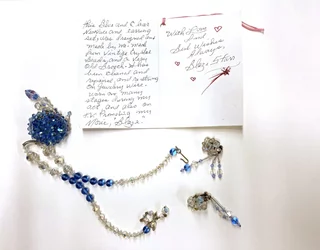 This Blue and Clear
Necklace and earring
set, was designed and
made by me, made
from Vintage Crystal
beads, and a Very
Old Brooch. It has
been cleaned and
repaired, and restrung
on jewelry wire.
worn on many
stages during my
act, and also on
TV. Promoting my
"Blaze"
With Love
and
Best Wishes
Always,
Blaze Starr